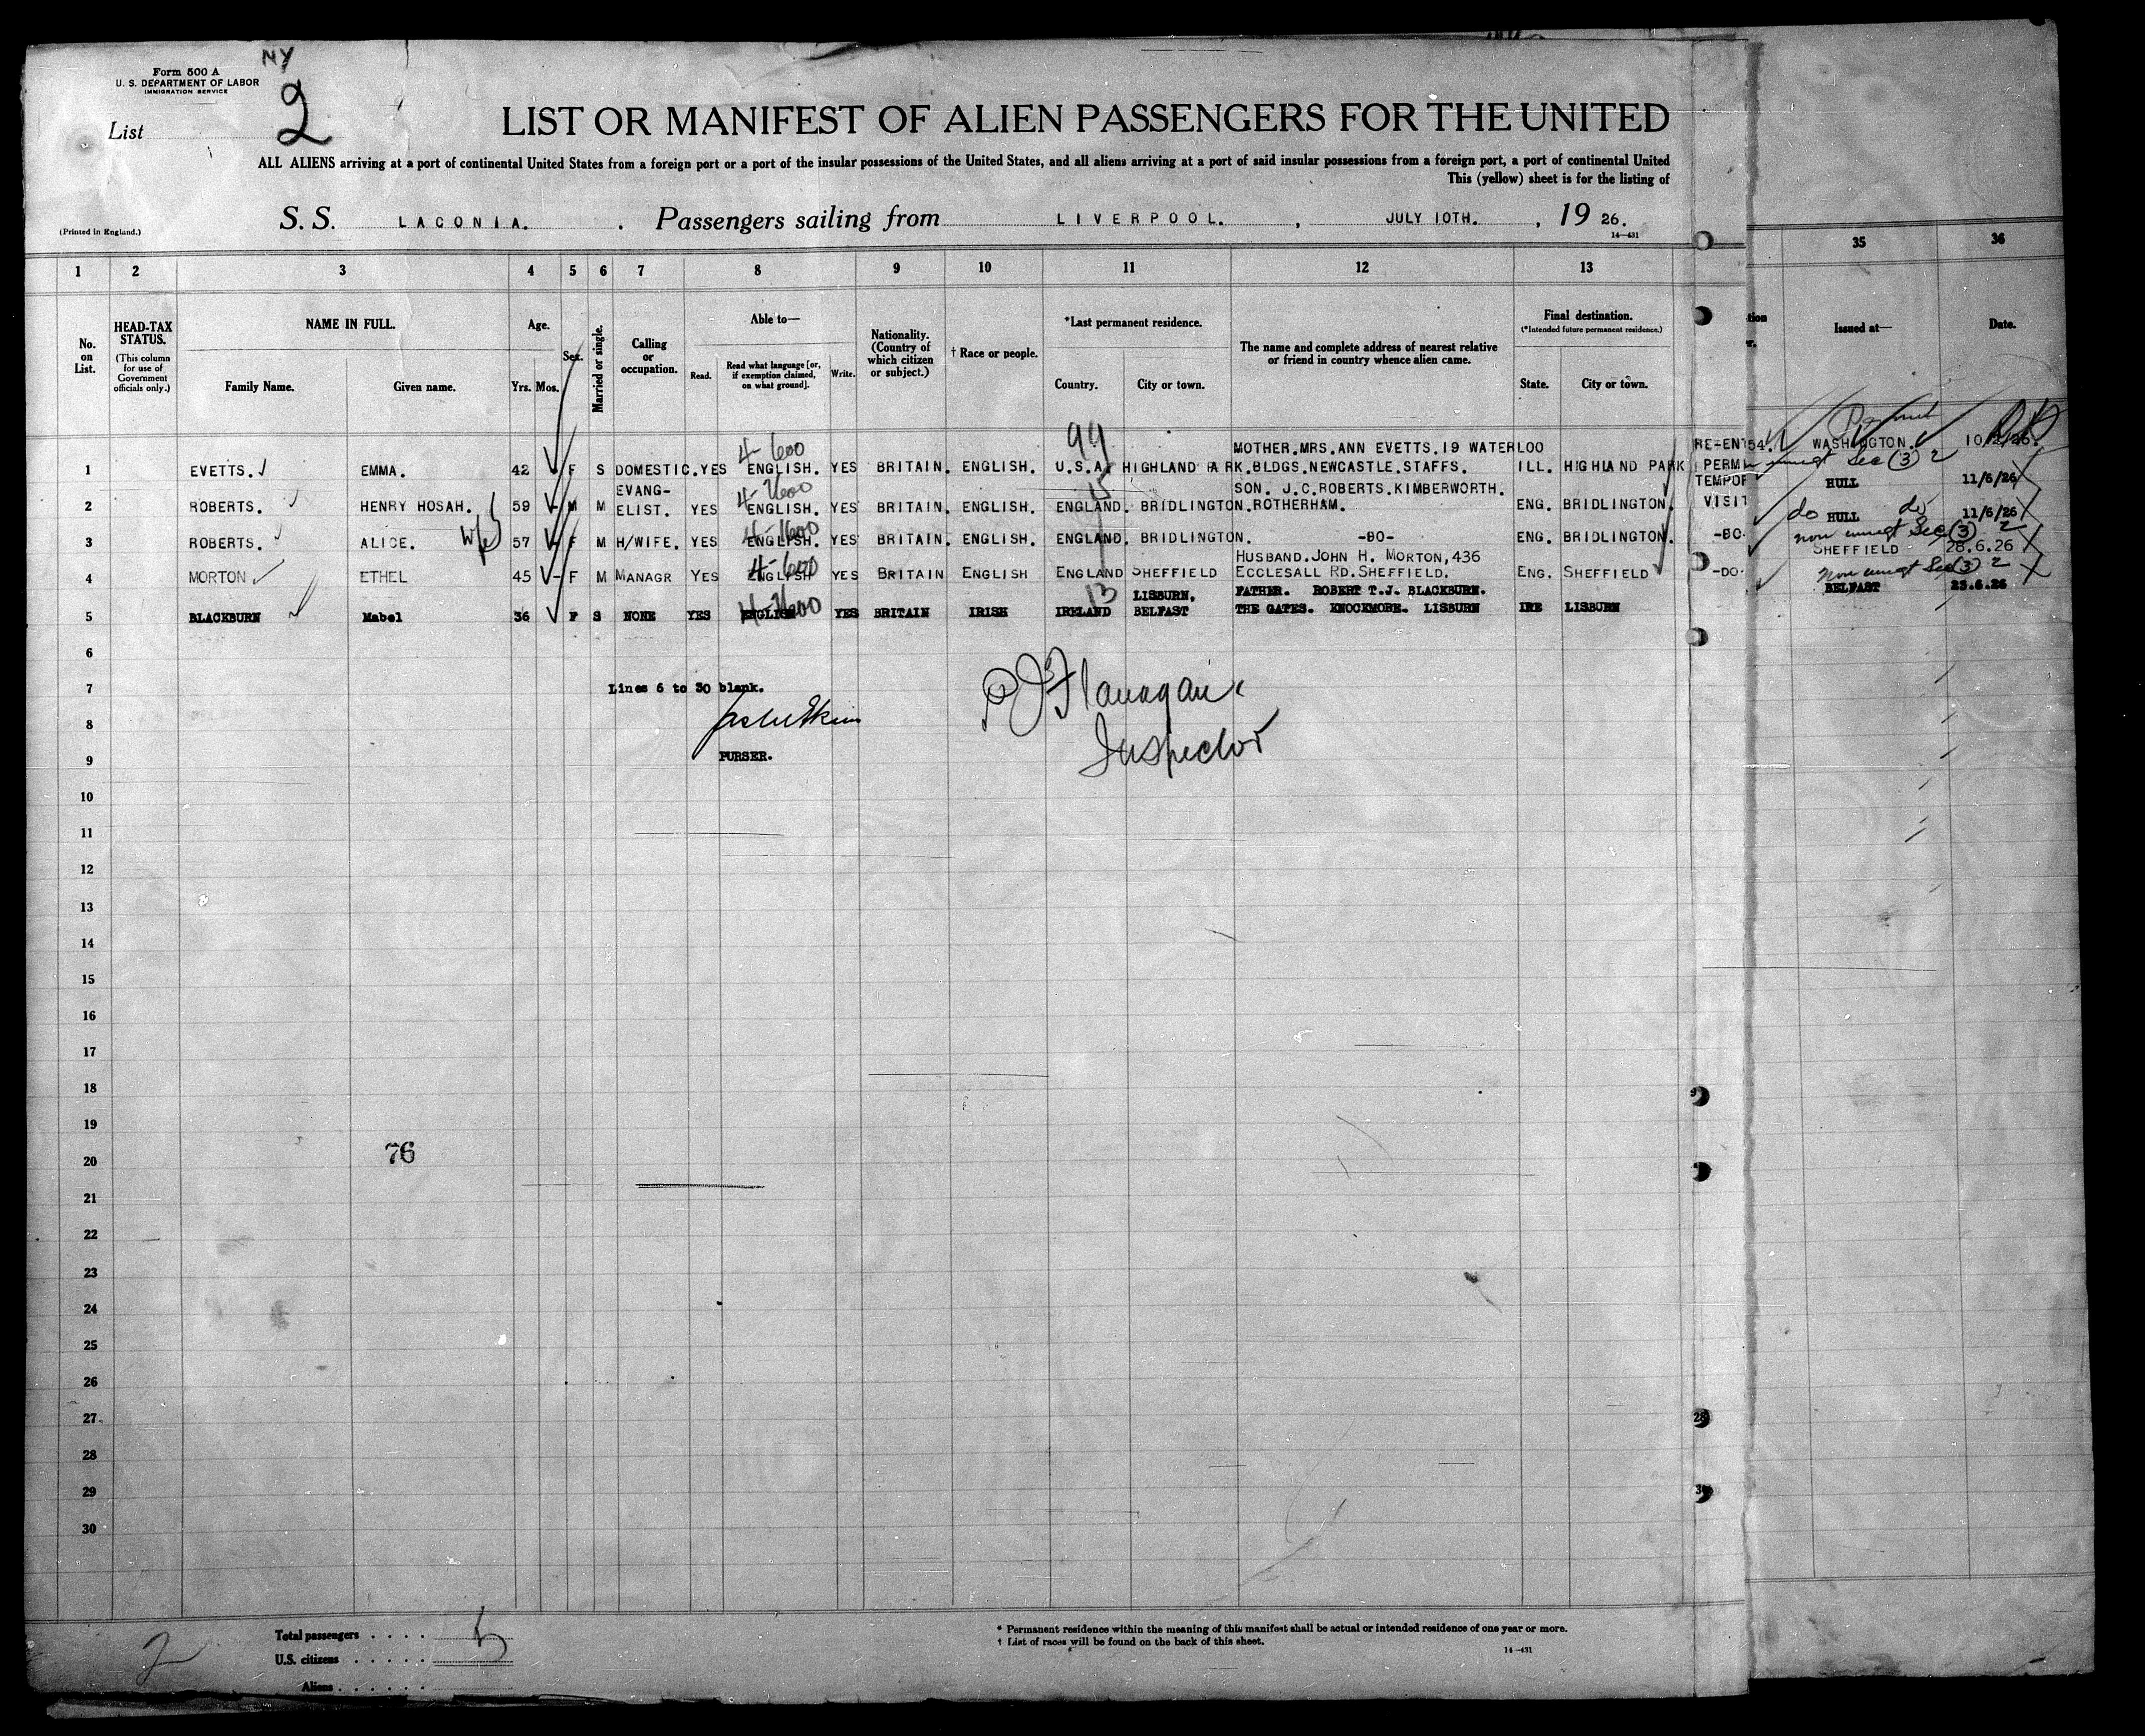 NY
Form 500 A
U. S. DEPARTMENT OF LABOR
IMMIGRATION SERVICE
List 2
LIST OR MANIFEST OF ALIEN PASSENGERS FOR THE UNITED
ALL ALIENS arriving at a port of continental United States from a foreign port or a port of the insular possessions of the United States, and all aliens arriving at a port of said insular possessions from a foreign port, a port of continental United
This (yellow) sheet is for the listing of
(Printed in England.)
S. S. LACONIA. . Passengers sailing from LIVERPOOL. , JULY 10TH. , 19 26.
14—431
1 2 3 4 5 6 7 8 9 10 11 12 13 35 36
No. on List.
HEAD-TAX STATUS.
(This column for use of Government officials only.)
NAME IN FULL.
Family Name. Given name.
Age.
Yrs. Mos.
Sex.
Married or single.
Calling or occupation.
Able to—
Read. Read what language [or, if exemption claimed, on what ground]. Write.
Nationality. (Country of which citizen or subject.)
† Race or people.
*Last permanent residence.
Country. City or town.
The name and complete address of nearest relative or friend in country whence alien came.
Final destination.
(*Intended future permanent residence.)
State. City or town.
Issued at— Date.
4-600 99 MOTHER.MRS.ANN EVETTS.19 WATERLOO RE-ENT 54. WASHINGTON. 10/2/26.
1 EVETTS. EMMA. 42 F S DOMESTIC. YES ENGLISH. YES BRITAIN. ENGLISH. U.S.A. HIGHLAND PARK. BLDGS.NEWCASTLE.STAFFS. ILL. HIGHLAND PARK PERM
EVANG- 15 SON. J.C.ROBERTS.KIMBERWORTH. TEMPOR HULL 11/6/26
2 ROBERTS. HENRY HOSAH. 59 M M ELIST. YES ENGLISH. YES BRITAIN. ENGLISH. ENGLAND. BRIDLINGTON. ROTHERHAM. ENG. BRIDLINGTON. VISIT
do HULL do 11/6/26
3 ROBERTS. ALICE. wife 57 F M H/WIFE. YES ENGLISH. YES BRITAIN. ENGLISH. ENGLAND. BRIDLINGTON. -DO- ENG. BRIDLINGTON. -DO-
4-600 HUSBAND.JOHN H. MORTON,436 SHEFFIELD 28.6.26
4 MORTON ETHEL 45 F M MANAGR YES ENGLISH YES BRITAIN ENGLISH ENGLAND SHEFFIELD ECCLESALL RD.SHEFFIELD. ENG. SHEFFIELD -DO-
13 LISBURN, FATHER. ROBERT T.J. BLACKBURN. BELFAST 23.6.26
5 BLACKBURN Mabel 36 F S NONE YES ENGLISH YES BRITAIN IRISH IRELAND BELFAST THE GATES. KNOCKMORE. LISBURN IRE LISBURN
6
7 Lines 6 to 30 blank.
P J Flanagan
8
Inspector
9 PURSER.
10
11
12
13
14
15
16
17
18
19
76
20
21
22
23
24
25
26
27
28
29
30
2
Total passengers . . . . 5
U.S. citizens . . . . .
Aliens . . . . . .
* Permanent residence within the meaning of this manifest shall be actual or intended residence of one year or more.
† List of races will be found on the back of this sheet.
14—431